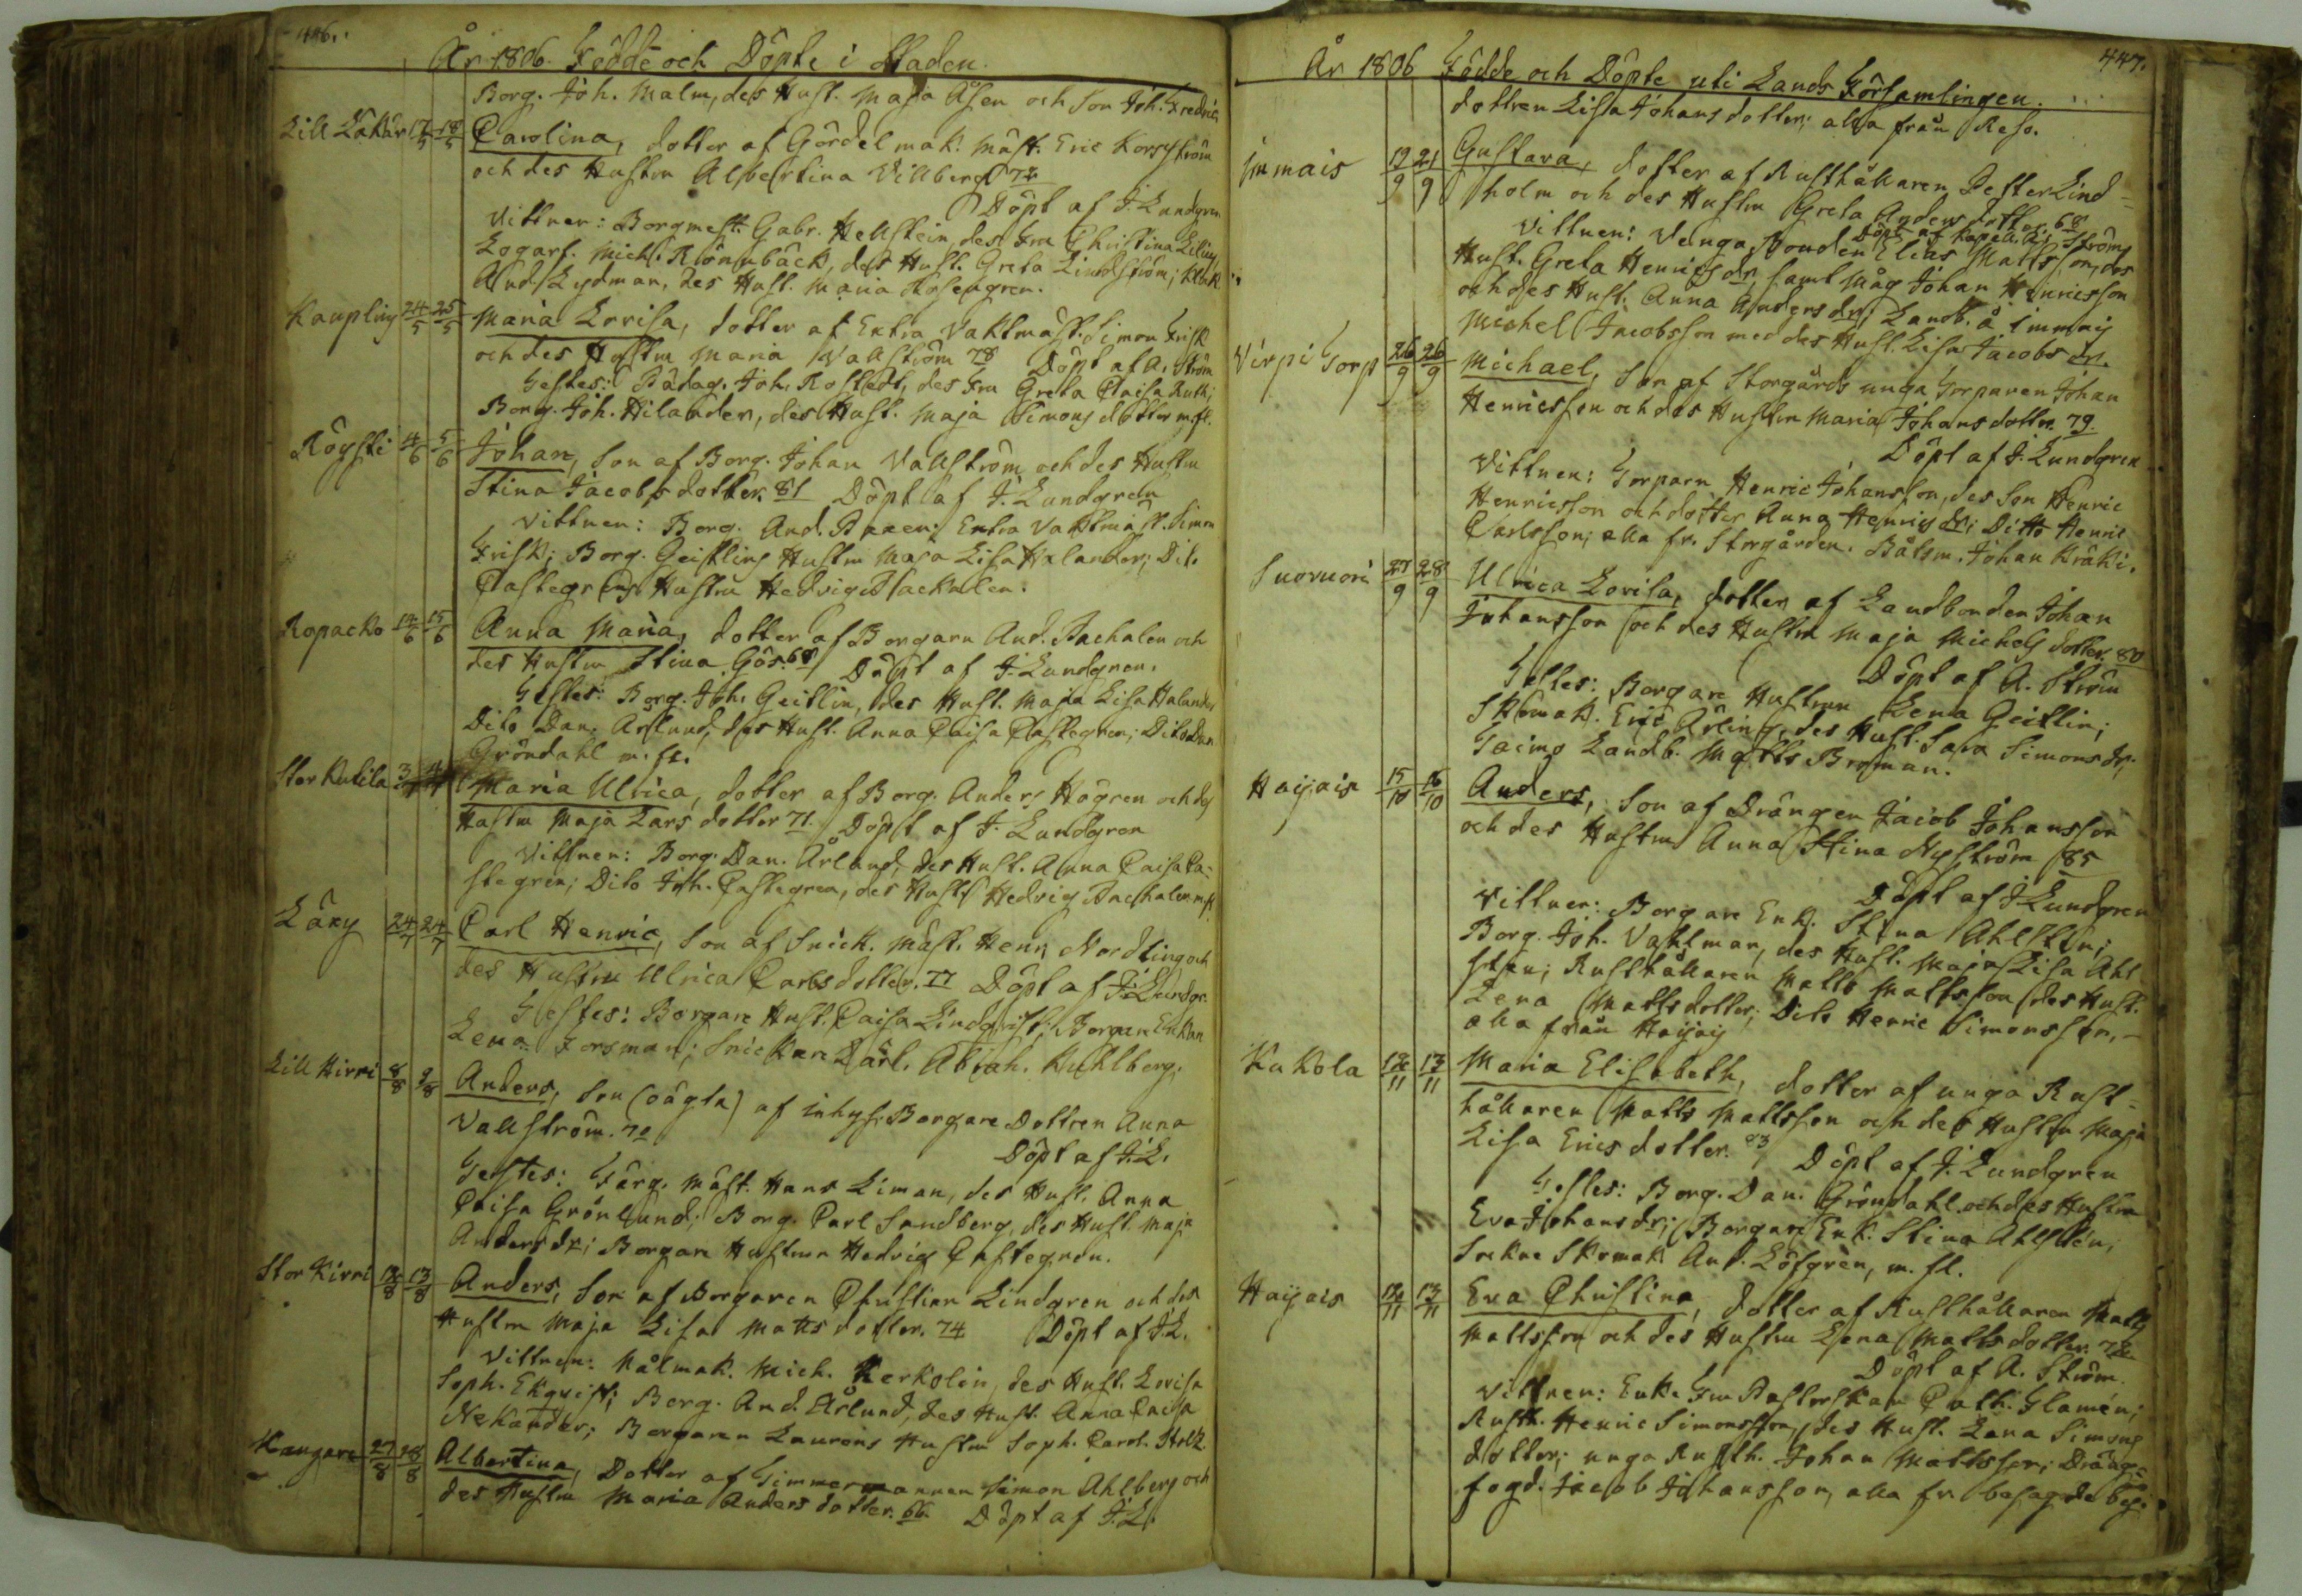 446.
År 1806. Födde och Döpte i Staden.
Borg. Joh. Malm, des Hust. Maja Åsen och Son Joh. Fredric
Lill 17/5 18/5 Carolina, dotter af Gördelmak. Mäst. Eric Korsström
och des Hustru Albertina Villberg
Döpt af J. Lundgren
Vittnen: Borgmest. Gabr. Hellstein, des Fru Christina Lilius
Logarf. Mich. Rönnbäck, des Hust. Greta Lindström; Klock.
And. Lydman, des Hust. Maria Rosengren.
Kaupling 24/5 25/5 Maria Lovisa, dotter af Extra Vaktmäst. Simon Frisk
och des Hustru Maria Vallström 78 Döpt af A. Ström
Testes: Pädag. Joh. Rostedt, des Fru Greta Caisa Ruth;
Borg. Joh. Hilander, des Hust. Maja Simons dotter m.fl.
Röysti 4/6 5/6 Johan, Son af Borg. Johan Vallström och des Hustru
Stina Jacobs dotter. 81 Döpt af J. Lundgren
Vittnen: Borg. And. Extra Vaktmäst. Simon
Frisk; Borg. Geitlins Hustru Maja Lisa Dito
Castegrens Hustru Hedvig Backalen.
Ropacko 14/6 15/6 Anna Maria, dotter af Borgarn And. Backalen och
des Hustru Stina Gös. 68 Döpt af J. Lundgren.
Testes: Borg. Joh. Geitlin, des Hust. Maja Lisa
Dito Dan. Årlund, des Hust. Anna Caisa Castegren; Dito Dan
Gröndahl m.fl.
Stor Kutila 3/7 4/7 Maria Ulrica, dotter af Borg. Anders Högren och des
Hustru Maja Lars dotter 71. Döpt af J. Lundgren
Vittnen: Borg. Dan. Årlund, des Hust. Anna Caisa Ca-
stegren; Dito Joh. Castegren, des Hust. Hedvig Backalen m.fl.
24/7 24/7 Carl Henric, Son af Snick. Mäst. Henr. Nordling och
des Hustru Ulrica Carlsdotter. 77 Döpt af J. Lundgr.
Testes: Borgare Hust. Caisa Lindqvist; Borgare Enkan
Lena Forsman; Snickare Lärl. Abrah. Kuhlberg.
Lill Kirri 8/8 9/8 Anders, Son (oägta) af inhys. Borgare Dottren Anna
Vallström. 70
Döpt af J.L.
Testes: Färg. Mäst. Hans Liman, des Hust. Anna
Caisa Grönlund; Borg. Carl Sandberg, des Hust. Maja
Anders dr; Borgare Hustrun Hedvig Castegren.
Stor Kirri 12/8 13/8 Anders, Son af Borgaren Christian Lindgren och des
Hustru Maja Lisa Matts dotter. 74 Döpt af J.L.
Vittnen: Målmak. Mich. Kerkolin, des Hust. Lovisa
Soph. Ekqvist; Borg. And. Årlund, des Hust. Anna Caisa
Nekander; Borgaren Laurens Hustru Soph. Carol.
Kangare 27/8 28/8 Albertina, Dotter af Timmermannen Simon Ahlberg och
des Hustru Maria Anders dotter. 66. Döpt af J.L.
447.
År 1806 Födde och Döpte uti Lands Församlingen.
dottren Lisa Johans dotter; alla från Reso.
Immais 19/9 21/9 Gustava, dotter af Rusthållaren Petter Lind-
holm och des Hustru Greta Anders dotter. 68
Döpt af Kapell. A. Ström
Vittnen: Venga Bonden Elias Mattsson, des
Hust. Greta Henrics dr, samt Måg Johan Henricsson
och des Hust. Anna Anders dr; Landb. å Immais
Michel Jacobsson med des Hust. Lisa Jacobs dr.
Virpi Torp 26/9 26/9 Michael, Son af Storgårds unga Torparen Johan
Henricsson och des Hustru Maria Johans dotter. 79.
Döpt af J. Lundgren
Vittnen: Torparn Henric Johansson, des Son Henric
Henricsson och dotter Anna Henrics dr; Ditto Henric
Carlsson; alla fr. Storgården. Båtsm. Johan Kräki.
Suoruori 27/9 28/9 Ulrica Lovisa, dotter af Landbonden Johan
Johansson och des Hustru Maja Michels dotter. 80
Döpt af A. Ström
Testes: Borgare Hustrun Lena Geitlin;
Skomak. Eric Årling, des Hust. Sara Simons dr;
Taimo Landb. Matts Broman.
Haijais 15/10 16/10 Anders, Son af Drängen Jacob Johansson
och des Hustru Anna Stina Nyström 85
Döpt af J. Lundgren
Vittnen: Borgare Enk. Stina Ahlsten;
Borg. Joh. Vahlman, des Hust. Maja Lisa Ahl-
sten; Rusthållaren Matts Mattsson des Hust.
Lena Mattsdotter; Dito Henric Simonsson, -
alla från Haijais
Kakola 12/11 13/11 Maria Elisabeth, dotter af unga Rust-
hållaren Matts Mattsson och des Hustru Maja
Lisa Erics dotter. 83 Döpt af J. Lundgren
Testes: Borg. Dan. Gröndahl och des Hustru
Eva Johans dr; Borgare Enk. Stina Ahlstén;
Sockne Skomak. And. Löfgren, m. fl.
Haijais 12/11 13/11 Eva Christina, dotter af Rusthållaren Matts
Mattsson och des Hustru Lena Matts dotter.
Döpt af A. Ström.
Vittnen: Enke Fru Pastorskan Cath. Flamén;
Rusth. Henric Simonsson, des Hust. Lena Simons
dotter; unga Rusth. Johan Mattsson; Dräng-
fogd. Jacob Johansson, alla fr. besagde by.